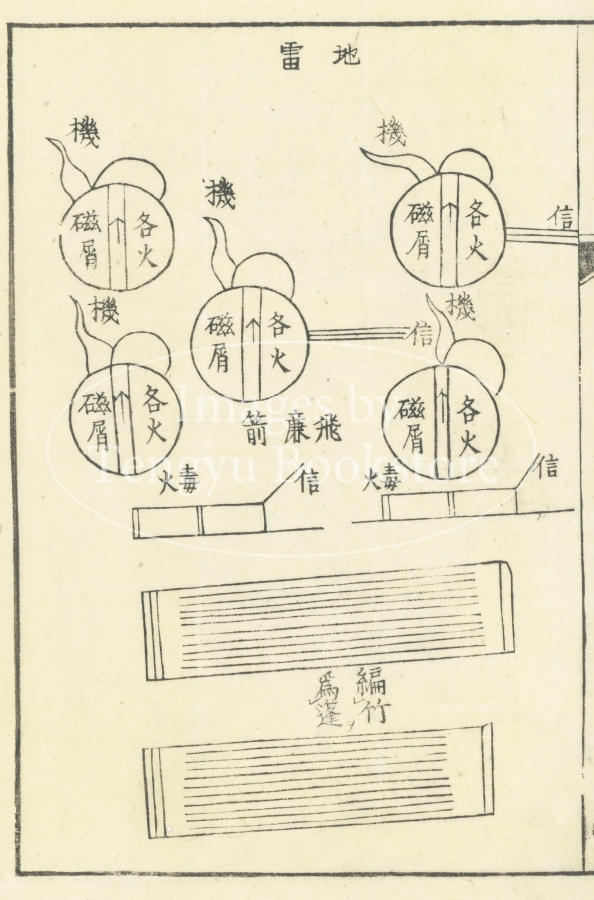 地雷
機
各火
磁屑
信
機
各火
磁屑
信
機
各火
磁屑
機
各火
磁屑
機
各火
磁屑
飛廉箭
信
毒火
信
毒火
編竹
為蓬
Images by
Tengyu Bookstore